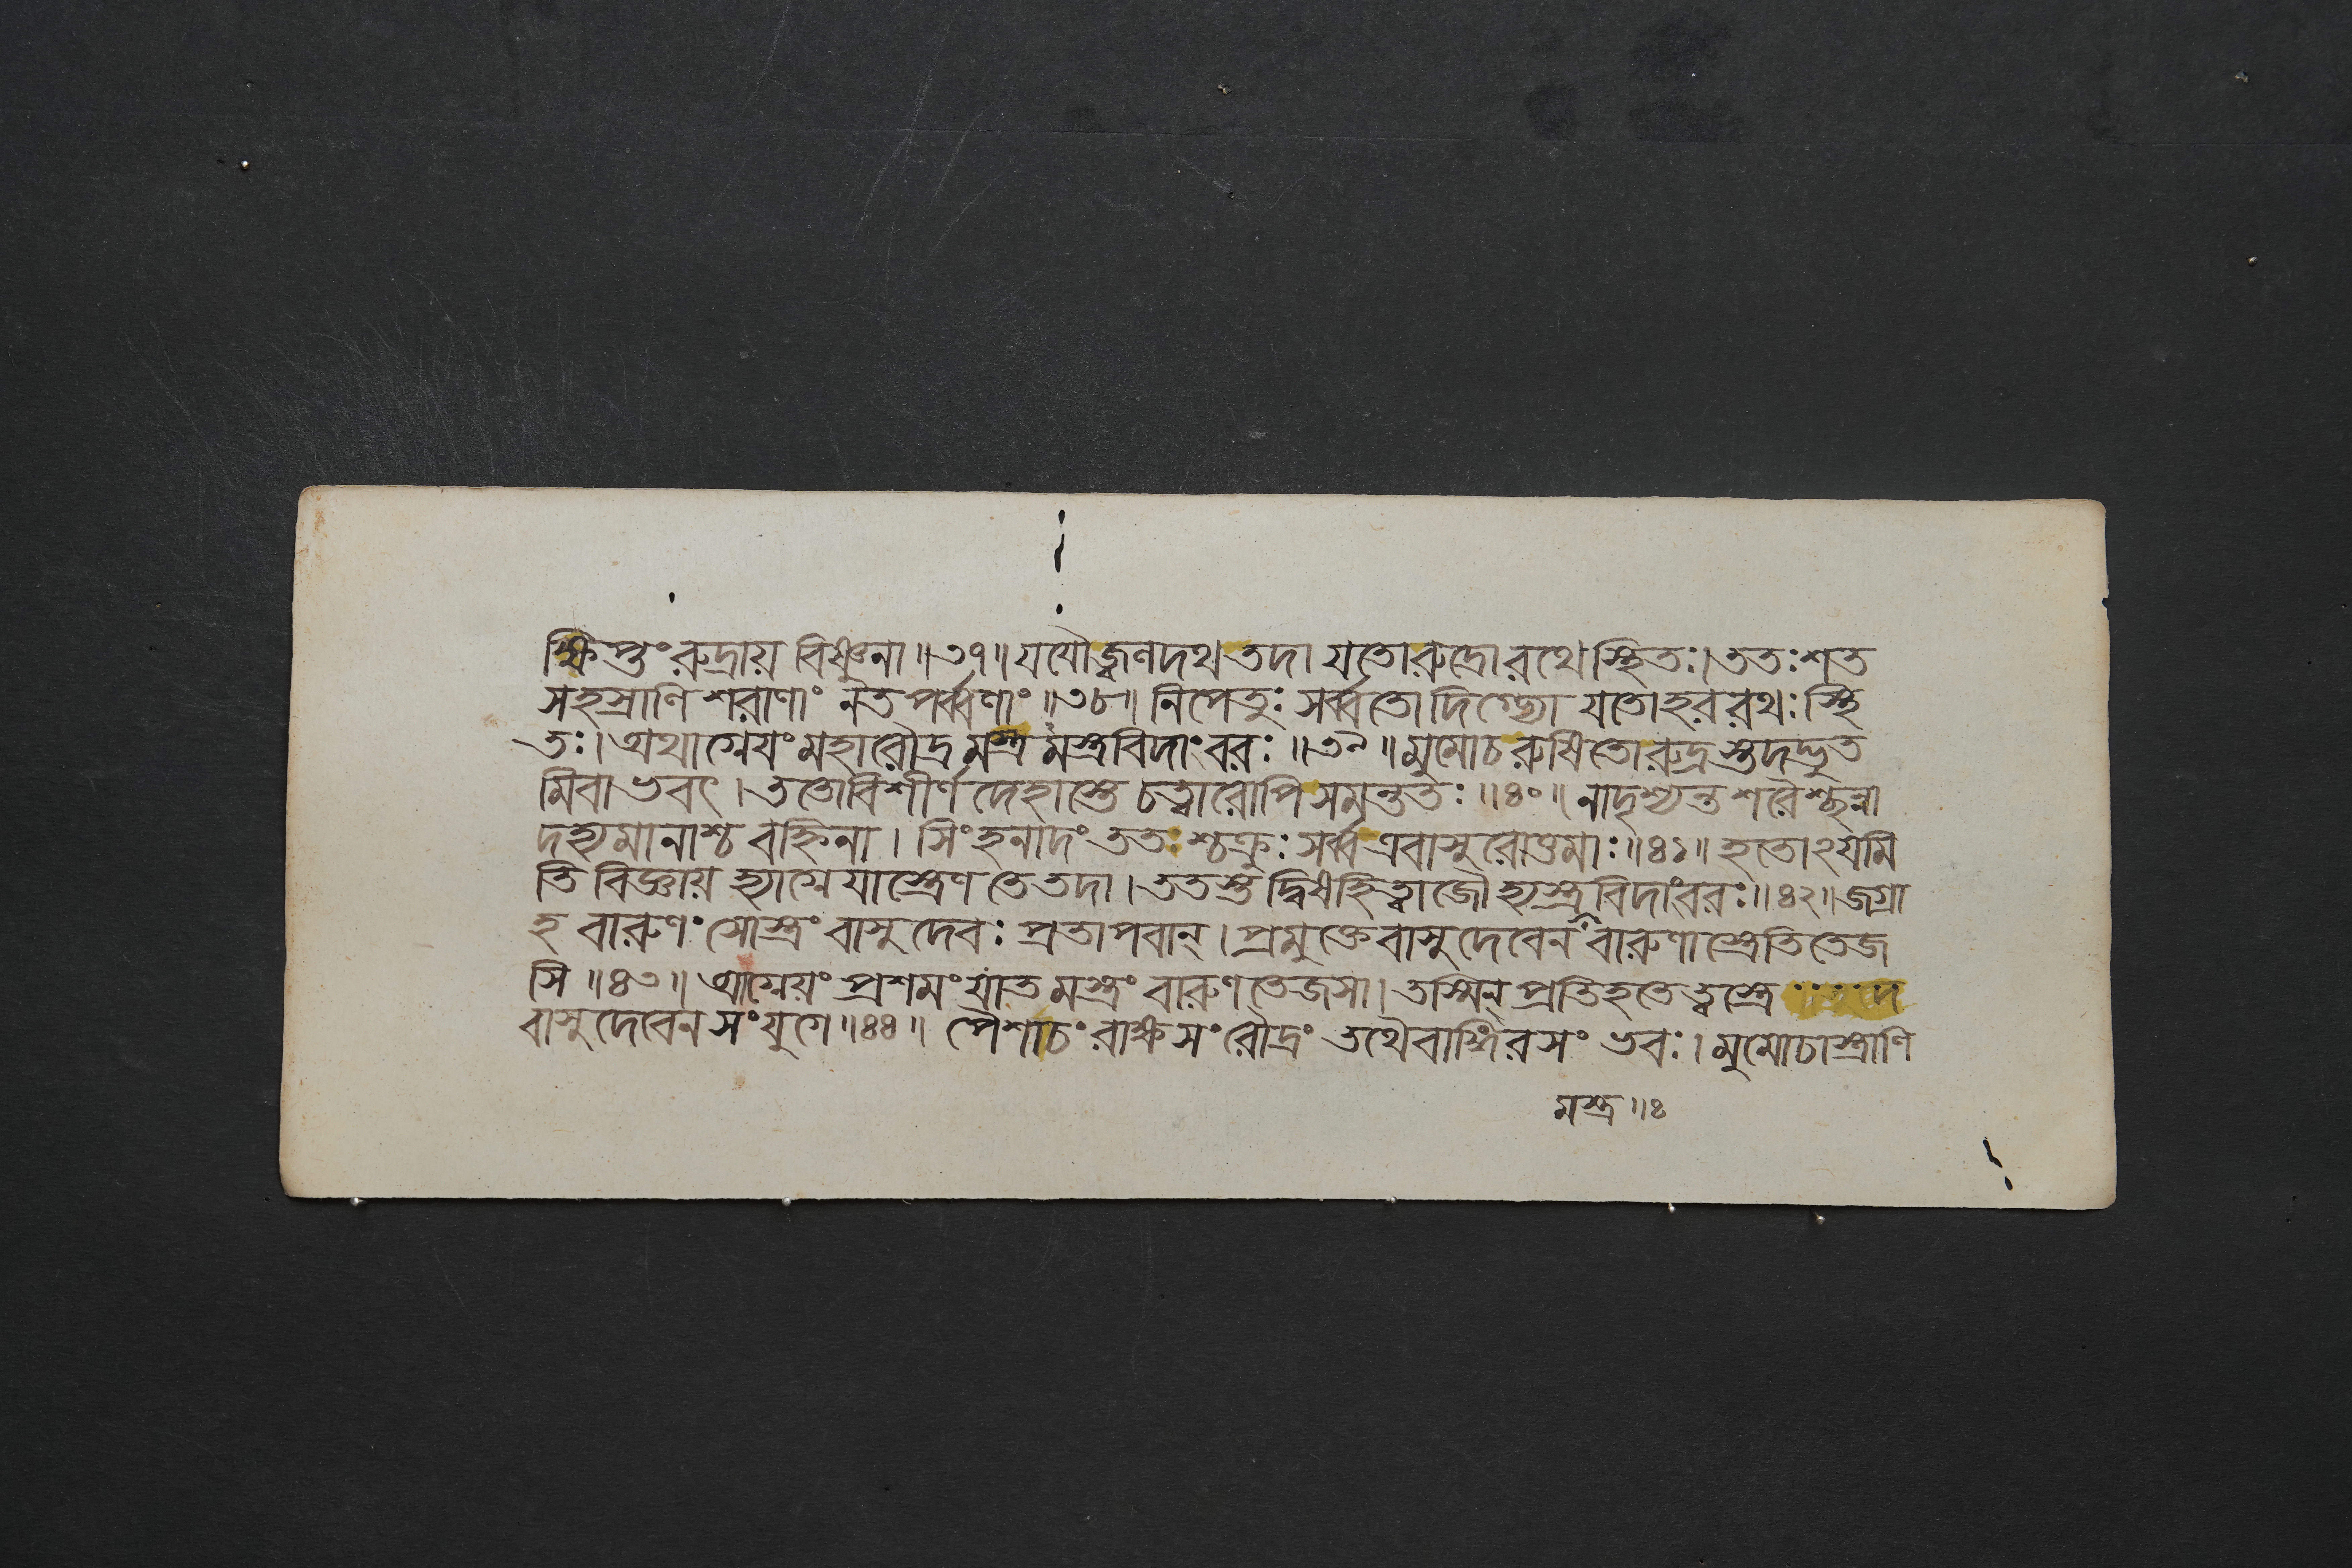 ক্ষিপ্তং রুদ্রায় বিষ্ণুনা ॥ ৩৭ ॥ যযৌ জ্বণদথ তদা যতো রুদ্রো রথে স্থিতঃ । ততঃ শত
সহস্রাণি শরাণাং নতপর্ব্বণাং ॥ ৩৮ ॥ নিপেতুঃ সর্ব্বতো দিগ্ভ্যো যতো হর রথঃ স্থি
তঃ । অথাগ্নেযং মহারৌদ্রমস্ত্রমস্ত্রবিদাং বরঃ ॥ ৩৯ ॥ মুমোচ রুষিতো রুদ্রস্তদদ্ভুত
মিবাভবৎ । ততো বিশীর্ণদেহাস্তে চত্বারোপি সমন্ততঃ ॥ ৪০ ॥ নাদৃশ্যন্ত শরৈশ্ছন্না
দহ্যমানাশ্চ বহ্নিনা । সিংহনাদং ততশ্চক্রুঃ সর্ব্ব এবাসুরোত্তমাঃ ॥ ৪১ ॥ হতোঽযমি
তি বিজ্ঞায় হ্যাগ্নেযাস্ত্রেণ তে তদা । ততস্তদ্বিষহিত্বাজৌ হ্যস্ত্রবিদাংবরঃ ॥ ৪২ ॥ জগ্রা
হ বারুণং সোস্ত্রং বাসুদেবঃ প্রতাপবান্ । প্রমুক্তে বাসুদেবেন বারুণাস্ত্রেতিতেজ
সি ॥ ৪৩ ॥ আগ্নেয়ং প্রশমং যাতমস্ত্রং বারুণতেজসা । তস্মিন্ প্রতিহতে ত্বস্ত্রে দে
বাসুদেবেন সংযুগে ॥ ৪৪ ॥ পৈশাচং রাক্ষসং রৌদ্রং তথৈবাঙ্গিরসং ভবঃ । মুমোচাস্ত্রাণি
মস্ত্র ॥ ৪